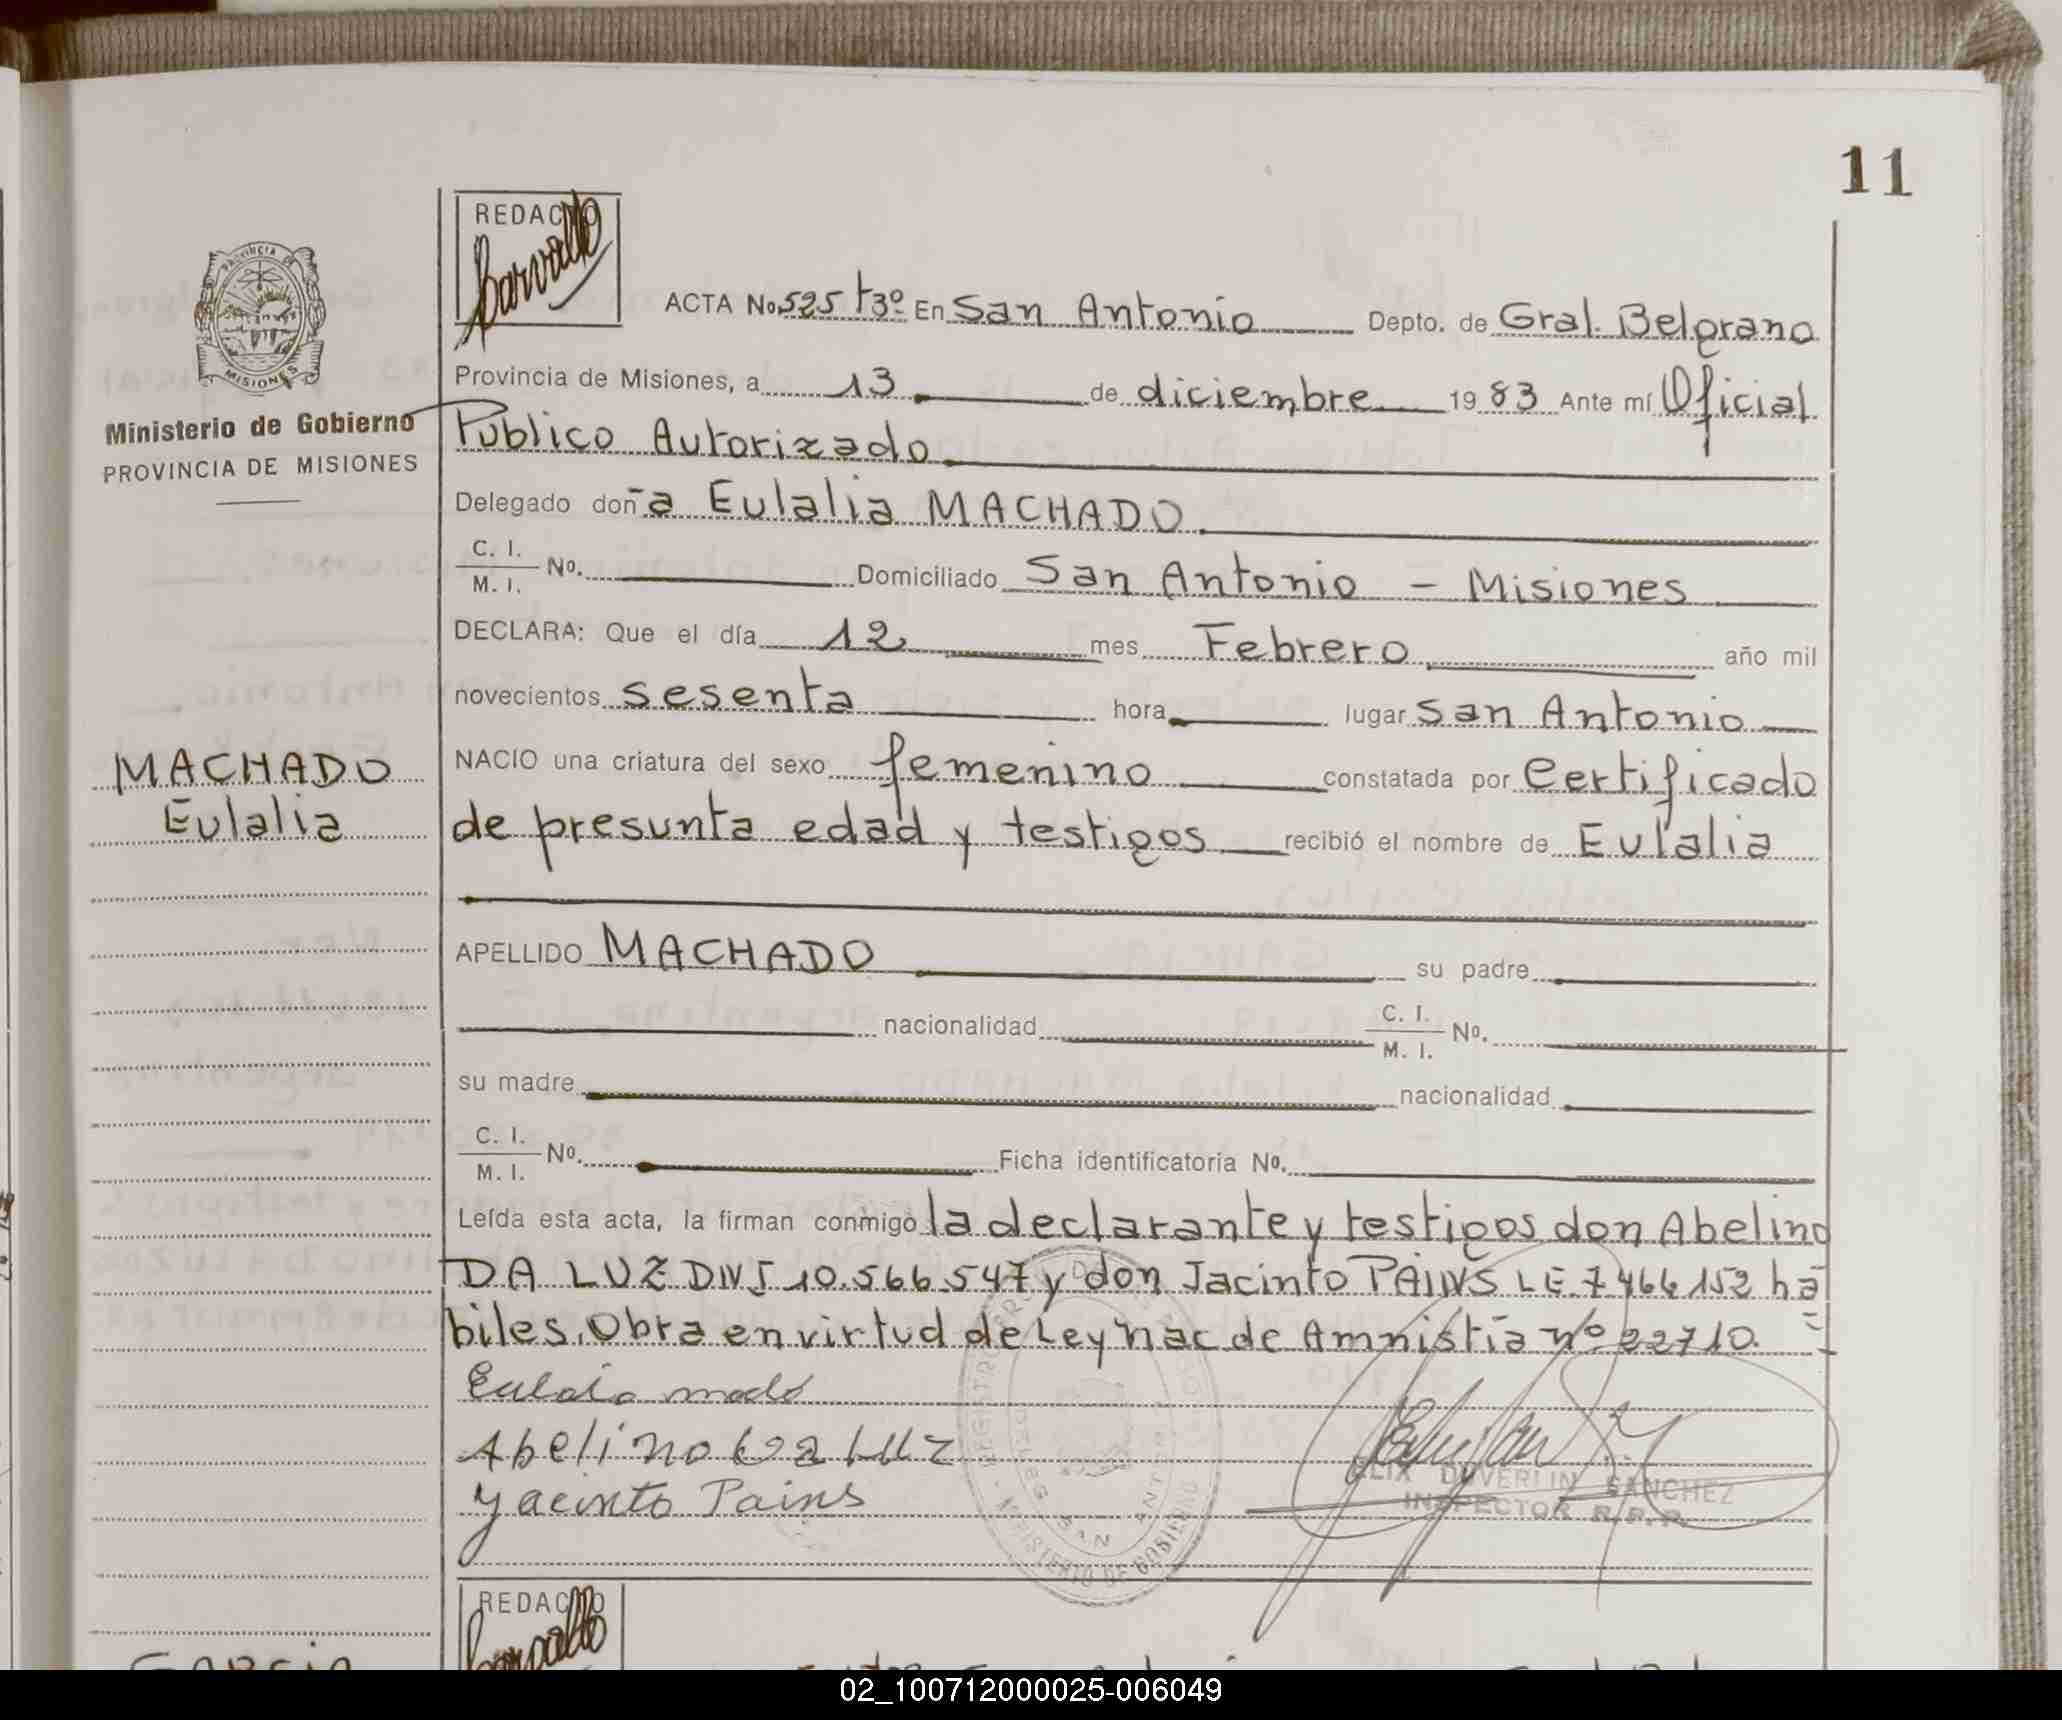 11
REDACTO
Carvallo
ACTA No. 525 t3º En San Antonio Depto. de Gral. Belgrano
Provincia de Misiones, a 13 de diciembre 1983 Ante mí Oficial
Público Autorizado
Delegado doña Eulalia MACHADO
C. I. / M. I. No. Domiciliado San Antonio - Misiones
DECLARA: Que el día 12 mes Febrero año mil
novecientos sesenta hora lugar San Antonio
NACIO una criatura del sexo femenino constatada por Certificado
de presunta edad y testigos recibió el nombre de Eulalia
APELLIDO MACHADO su padre
nacionalidad C. I. / M. I. No.
su madre nacionalidad
C. I. / M. I. No. Ficha identificatoria No.
Leída esta acta, la firman conmigo la declarante y testigos don Abelino
DA LUZ DNI 10.566.547 y don Jacinto PAINS LE. 7466152 há
biles. Obra en virtud de Ley Nac de Amnistía nº 22710.
Abelino da Luz
Yacinto Pains
DUVERLIN SANCHEZ
INSPECTOR R.P.P.
SAN ANTONIO
MINISTERIO DE GOBIERNO
PROVINCIA DE
MISIONES
Ministerio de Gobierno
PROVINCIA DE MISIONES
MACHADO
Eulalia
REDACTO
Carvallo
GARCIA
02_100712000025-006049